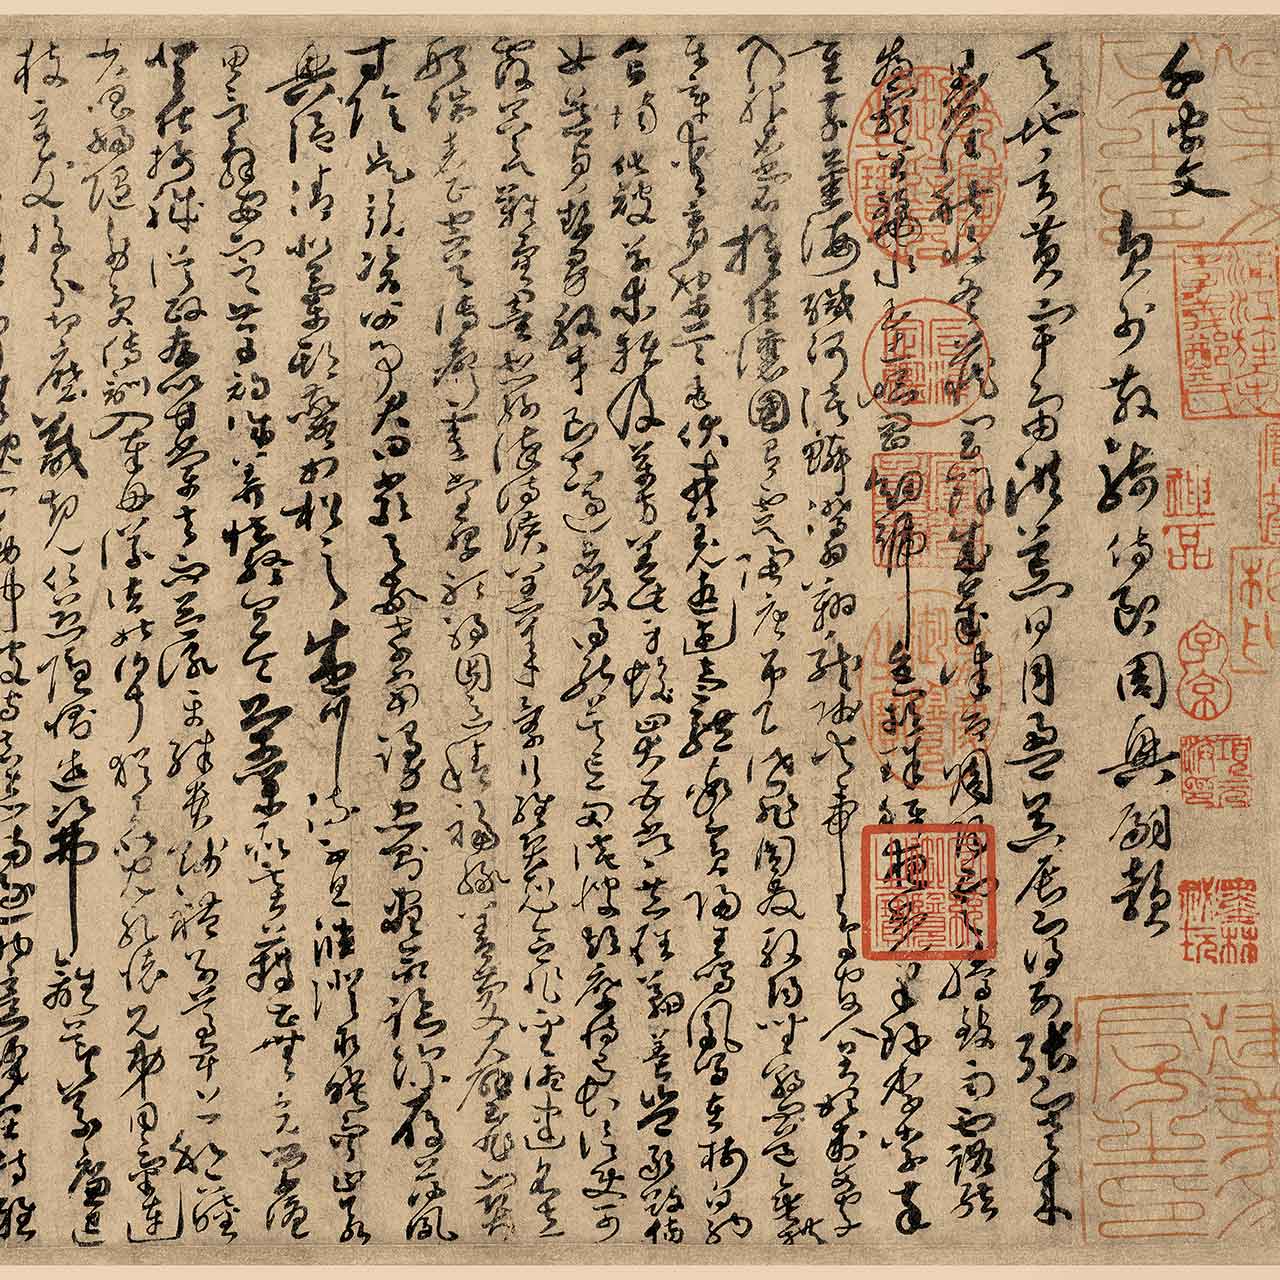 千字文
員外散騎侍郎周興嗣韻
天地玄黃宇宙洪荒日月盈昃辰宿列張寒來
暑往秋收冬藏閏餘成歲律呂調陽雲騰致雨露結
為霜金生麗水玉出崑岡劍號巨闕珠稱夜光果珍李柰菜
重芥薑海鹹河淡鱗潛羽翔龍師火帝鳥官人皇始制文字
乃服衣裳推位讓國有虞陶唐弔民伐罪周發殷湯坐朝問道垂拱
平章愛育黎首臣伏戎羌遐邇壹體率賓歸王鳴鳳在樹白駒
食場化被草木賴及萬方蓋此身髮四大五常恭惟鞠養豈敢毀傷
女慕貞潔男效才良知過必改得能莫忘罔談彼短靡恃己長信使可
覆器欲難量墨悲絲染詩讚羔羊景行維賢克念作聖德建名立
形端表正空谷傳聲虛堂習聽禍因惡積福緣善慶尺璧非寶
寸陰是競資父事君曰嚴與敬孝當竭力忠則盡命臨深履薄夙
興溫凊似蘭斯馨如松之盛川流不息淵澄取映容止若
思言辭安定篤初誠美慎終宜令榮業所基藉甚無竟學優
登仕攝職從政存以甘棠去而益詠樂殊貴賤禮別尊卑上和下睦
夫唱婦隨外受傅訓入奉母儀諸姑伯叔猶子比兒孔懷兄弟同氣連
枝交友投分切磨箴規仁慈隱惻造次弗離節義廉退